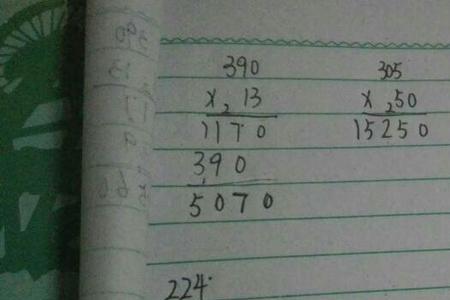 390
305
x 2 13
x 2 50
1170
15250
390
5070
224